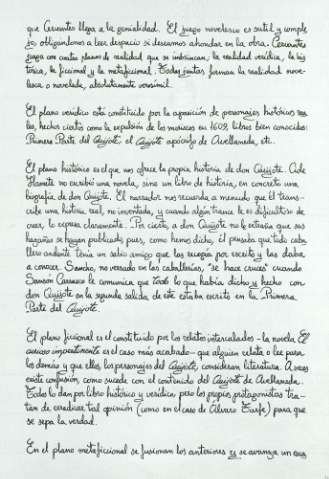 que Cervantes llega a la genialidad. El juego novelesco es sutil y comple
jo, obligándonos a leer despacio si deseamos ahondar en la obra. Cervantes
juega con cuatro planos de realidad que se imbrincan, la realidad verídica, la his
tórica, la ficcional y la metaficcional. Todas juntas forman la realidad nove-
lesca o novelada, absolutamente verosímil.
El plano verídico está constituido por la aparición de personajes históricos rea
les, hechos ciertos como la expulsión de los moriscos en 1609, libros bien conocidos:
Primera Parte del Quijote, el Quijote apócrifo de Avellaneda, etc.
El plano histórico es el que nos ofrece la propia historia de don Quijote. Cide
Hamete no escribió una novela, sino un libro de historia, en concreto una
biografía de don Quijote. El narrador nos recuerda a menudo que él trans-
cribe una historia real, no inventada, y cuando algún trance le es dificultoso de
creer, lo expresa claramente. Por cierto, a don Quijote no le extraña que sus
hazañas se hayan publicado, pues, como hemos dicho, él pensaba que todo caba
llero andante tenía un sabio amigo que las recogía por escrito y las daba
a conocer. Sancho, no versado en las caballerías, "se hace cruces" cuando
Sansón Carrasco le comunica que todo lo que había dicho y hecho con
don Quijote en la segunda salida de éste estaba escrito en la Primera
Parte del Quijote.
El plano ficcional es el constituido por los relatos intercalados - la novela El
curioso impertinente es el caso más acabado - que alguien relata o lee para
los demás y que ellos, los personajes del Quijote, consideran literatura. A veces
existe confusión, como sucede con el contenido del Quijote de Avellaneda.
Todos lo dan por libro histórico y verídico, pero los propios protagonistas tra-
tan de erradicar tal opinión (como en el caso de Álvaro Tarfe) para que
se sepa la verdad.
En el plano metaficcional se fusionan los anteriores y se avanza un